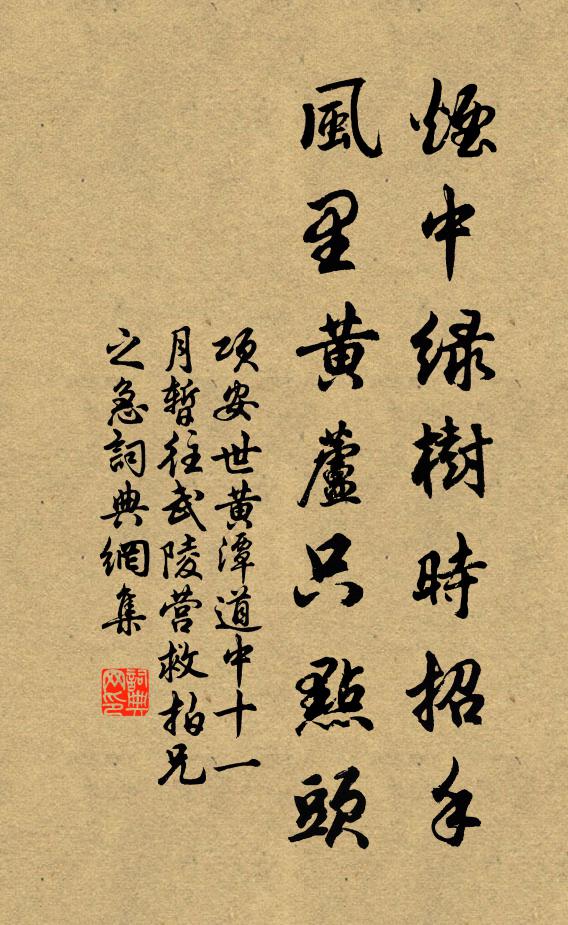 煙中緑樹時招手
風里黄蘆只點頭
項安世黄潭道中十一
月暫往武陵营救拍兄
之急詞典網集
詞典
网印